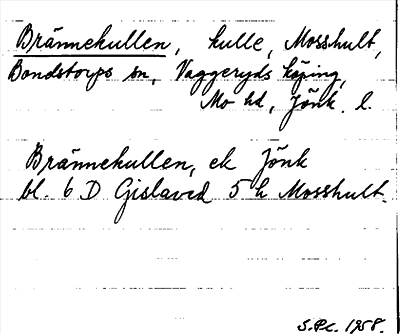 Brännekullen, kulle, Mosshult,
Bondstorps sn, Vaggeryds köping,
Mo hd, Jönk. l.
Brännekullen, ek Jönk
bl. 6 D Gislaved 5 h Mosshult.
S.Pc. 1958.